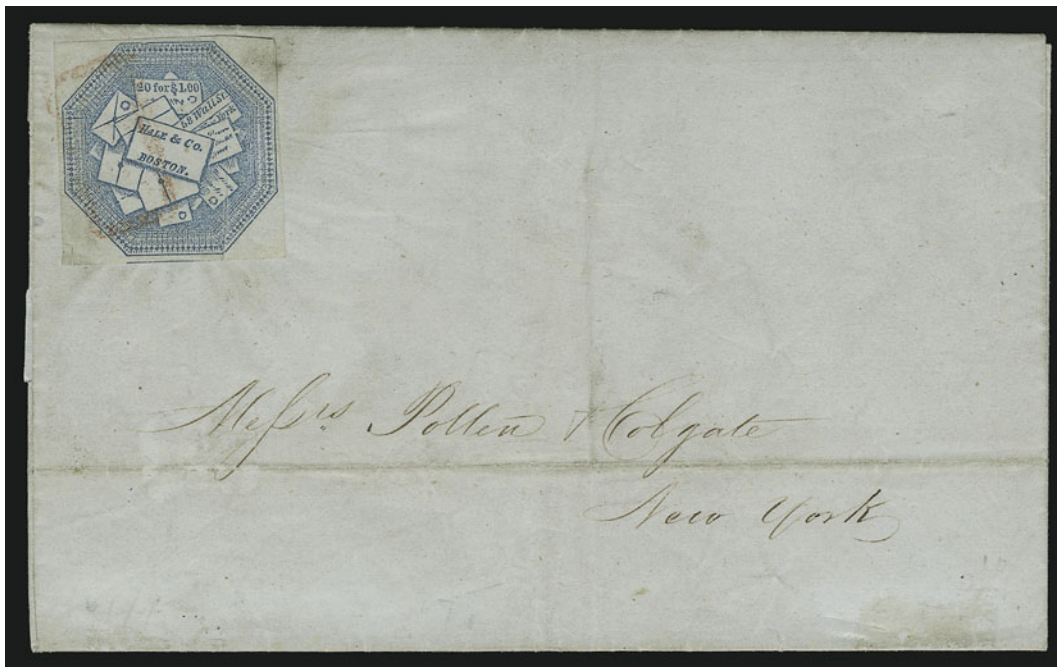 20 for $1.00
58 Wall St.
HALE & CO.
BOSTON.
Messrs. Pollen & Colgate
New York